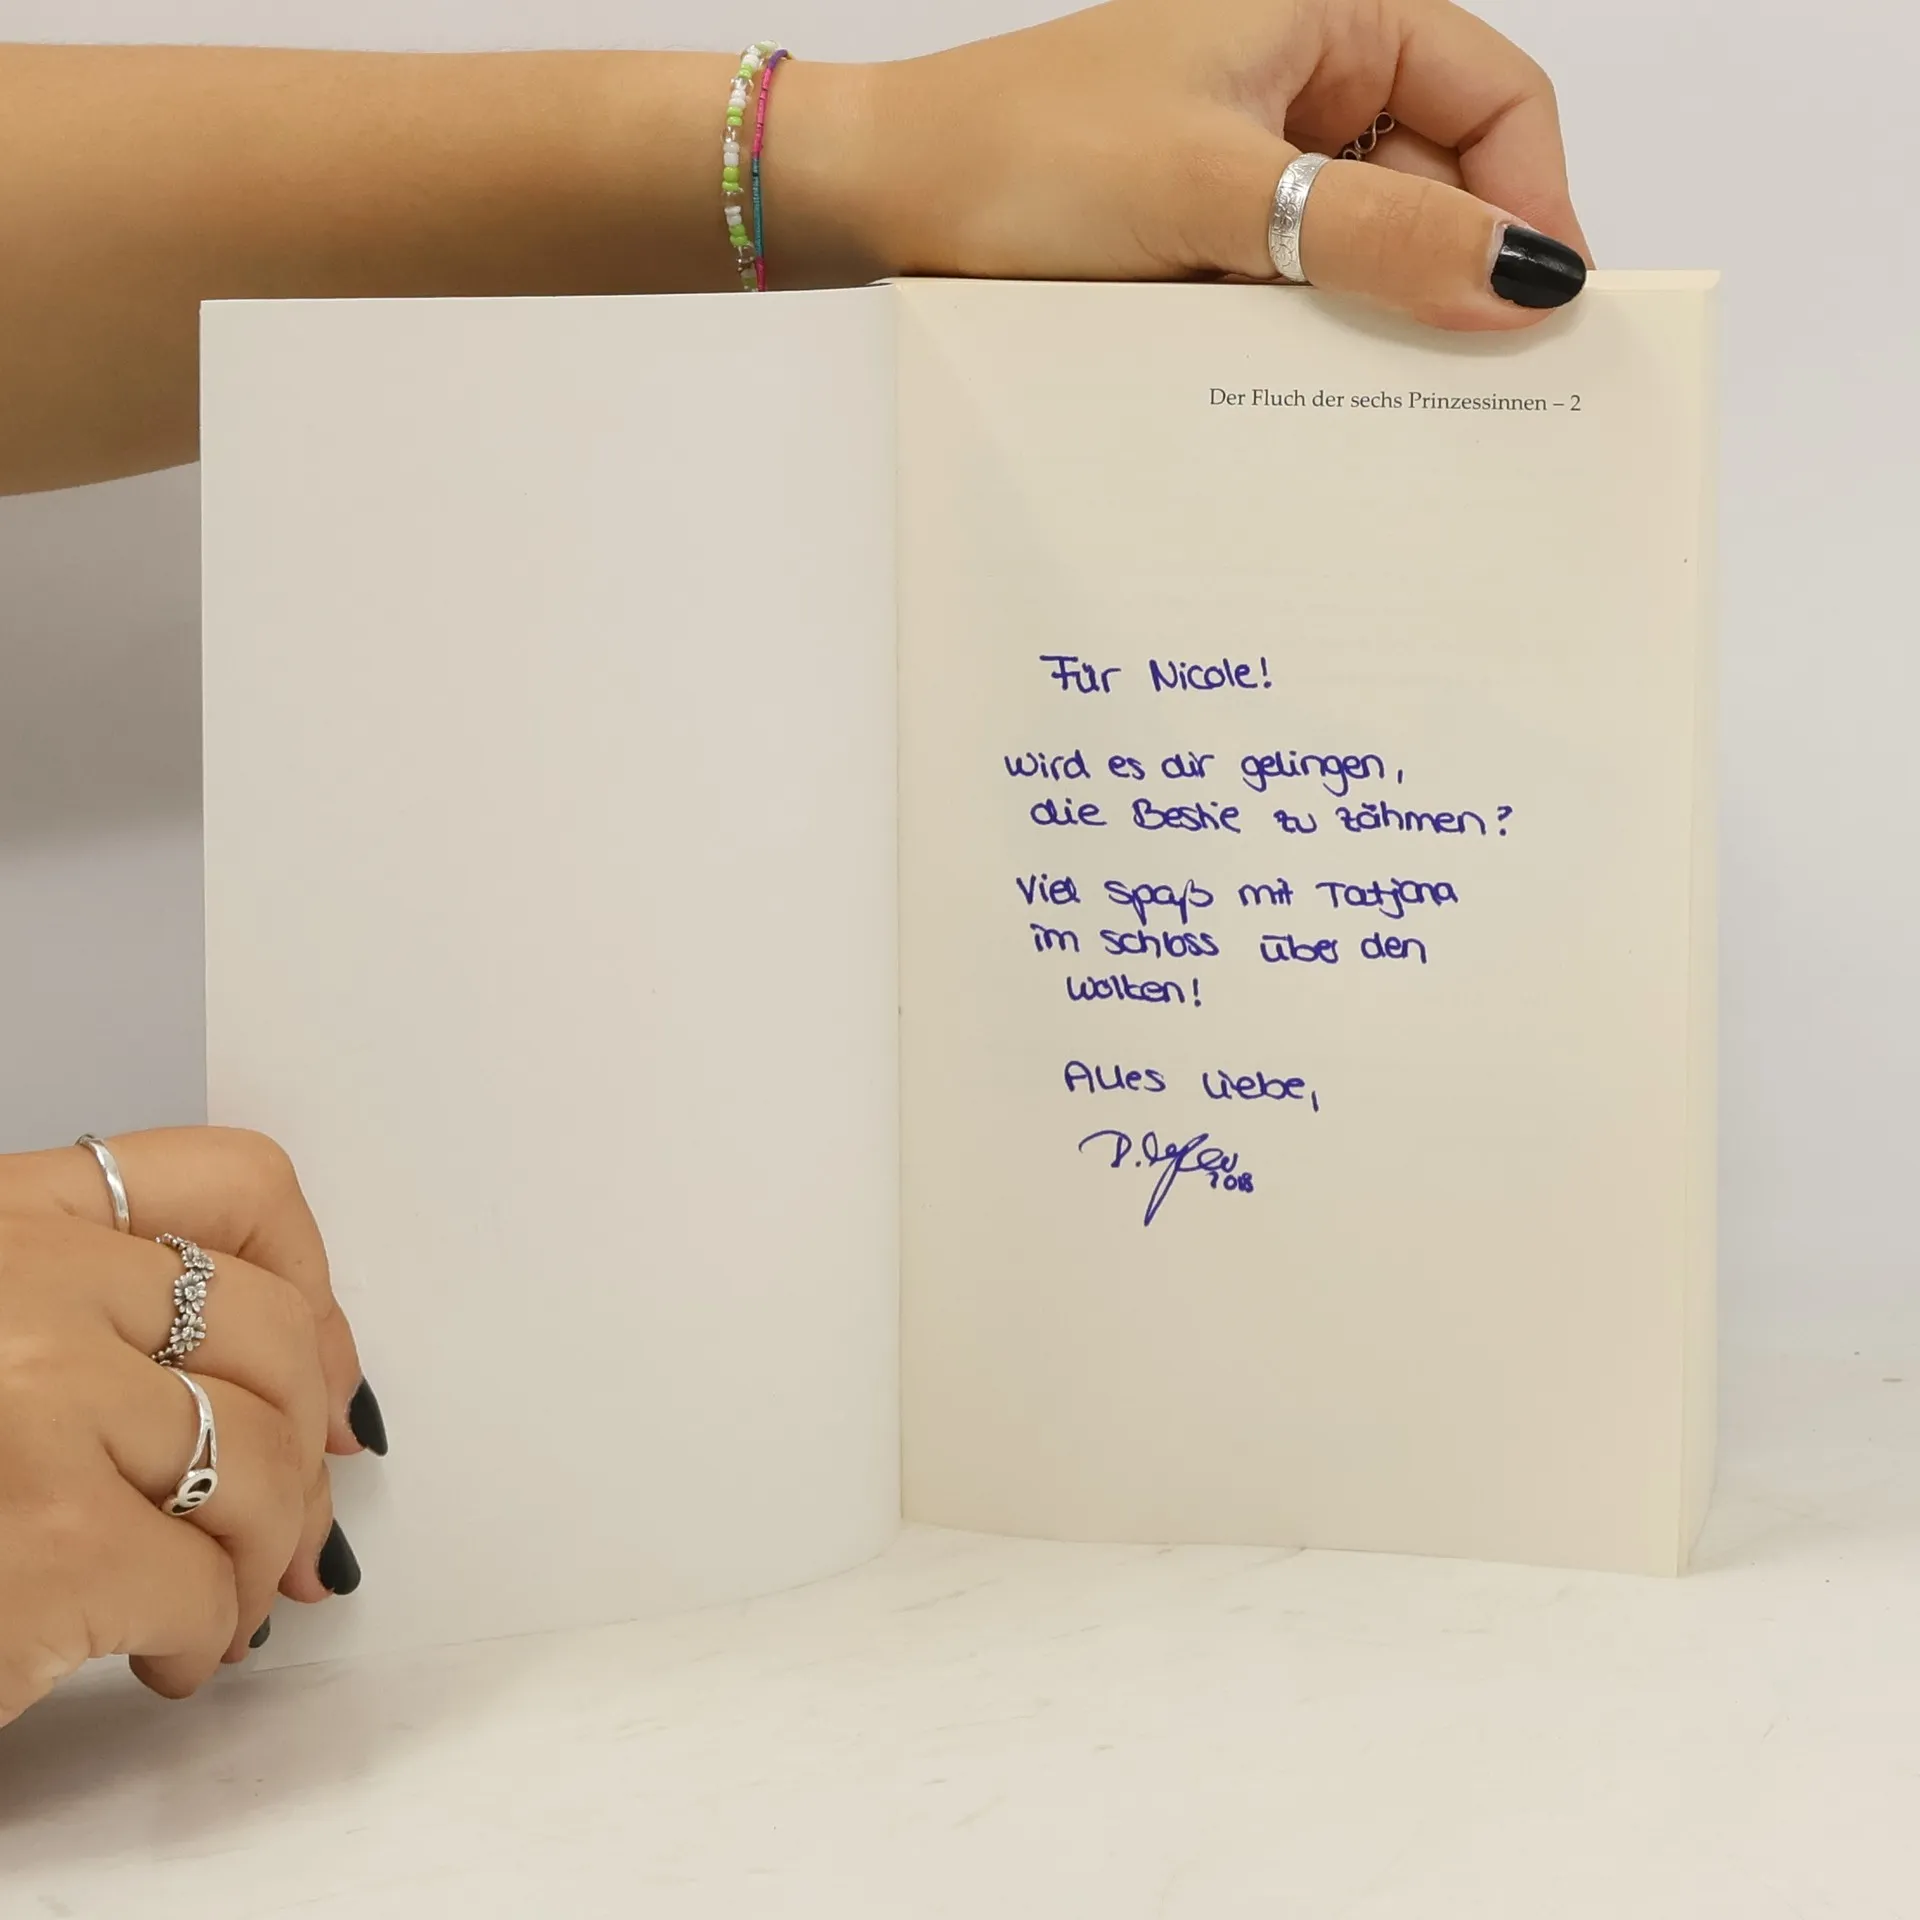 Der Fluch der sechs Prinzessinnen – 2
Für Nicole!
wird es dir gelingen,
die Bestie zu zähmen?
Viel Spaß mit Tatjana
im Schloss über den
Wolken!
Alles Liebe,
2018